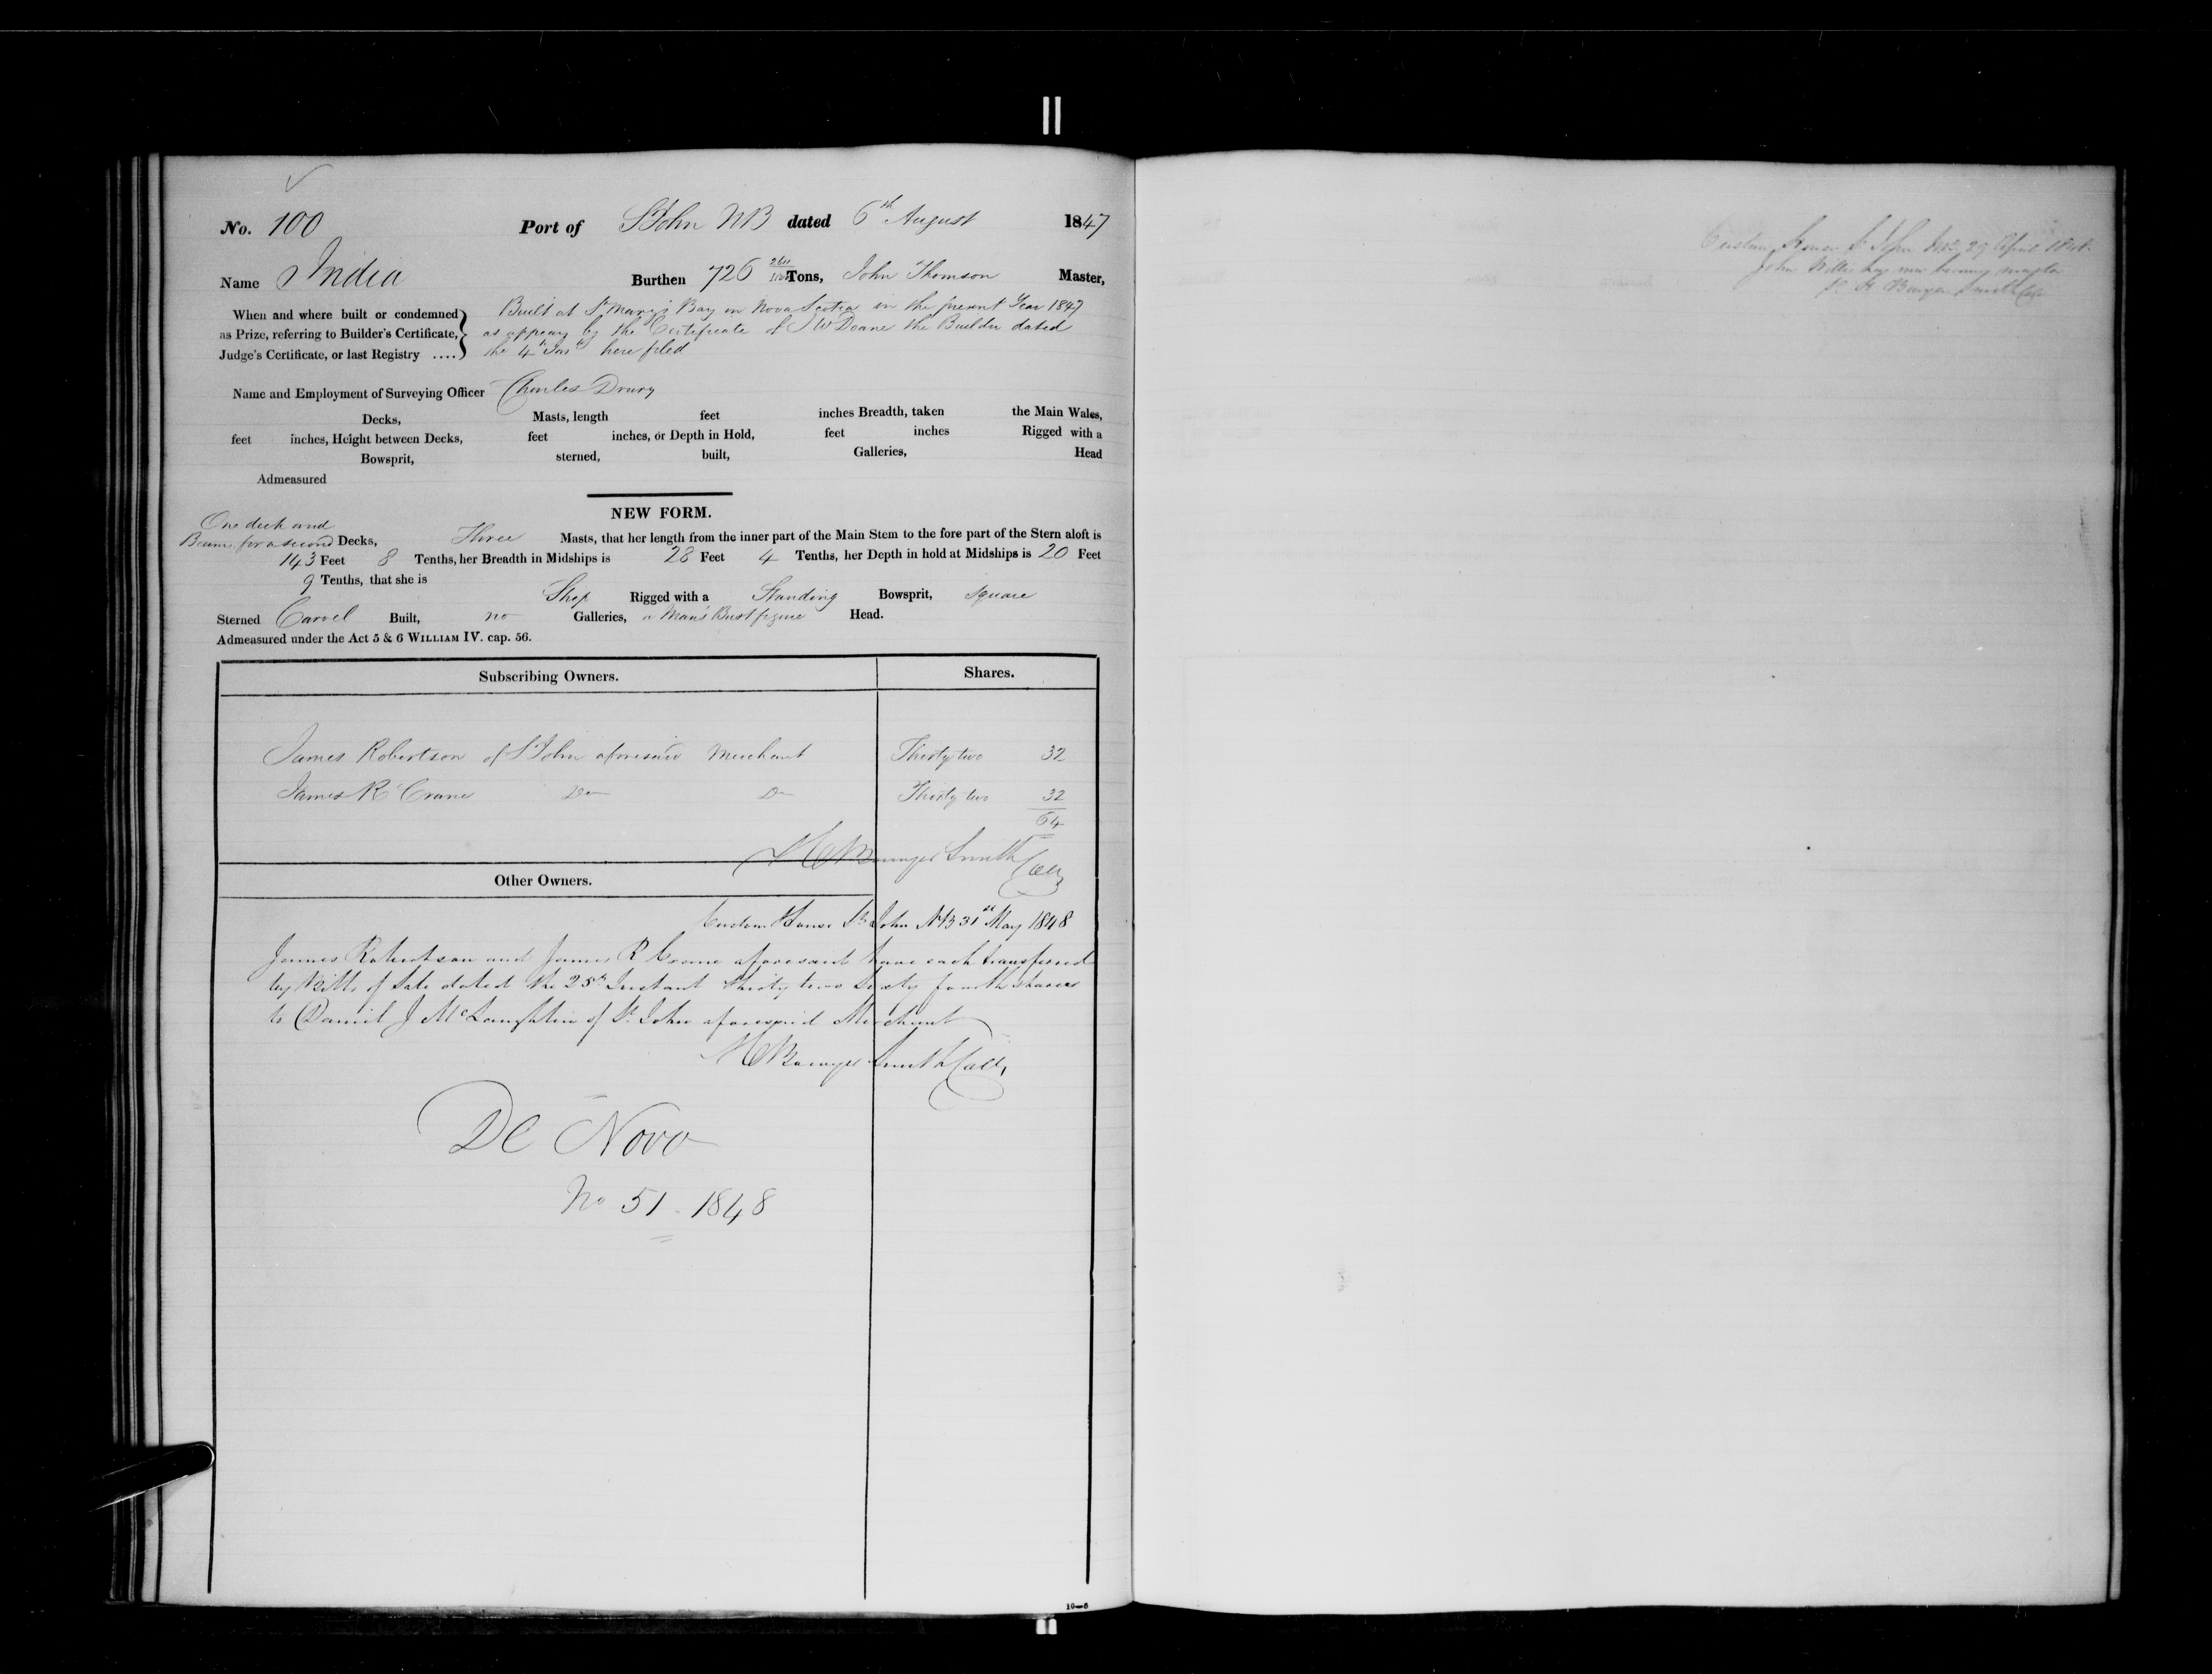 No. 100 Port of St John NB dated 6th August 1847
Name India Burthen 726 Tons, John Thomson Master,
When and where built or condemned as Prize, referring to Builder's Certificate, Judge's Certificate, or last Registry ....
Built at St Mary's Bay in Nova Scotia in the present Year 1847
as appears by the Certificate of J W Doane the Builder dated
the 4th Inst here filed
Name and Employment of Surveying Officer Charles Drury
Decks, Masts, length feet inches Breadth, taken the Main Wales,
feet inches, Height between Decks, feet inches, or Depth in Hold, feet inches Rigged with a
Bowsprit, sterned, built, Galleries, Head
Admeasured
NEW FORM.
One deck and
Beams for a second Decks, Three Masts, that her length from the inner part of the Main Stem to the fore part of the Stern aloft is
143 Feet 8 Tenths, her Breadth in Midships is 28 Feet 4 Tenths, her Depth in hold at Midships is 20 Feet
9 Tenths, that she is Ship Rigged with a Standing Bowsprit, square
Sterned Carvel Built, no Galleries, a Man's Bust figure Head.
Admeasured under the Act 5 & 6 WILLIAM IV. cap. 56.
Subscribing Owners. Shares.
James Robertson of St John aforesaid Merchant Thirty two 32
James R Crane Do Do Thirty two 32
64
H Bowyer Smith Collr
Other Owners.
Custom House St John NB 31st May 1848
James Robertson and James R Crane aforesaid have each transferred
by Bills of Sale dated the 25th Instant thirty two sixty fourth shares
to Daniel J McLaughlin of St John aforesaid Merchant
H Bowyer Smith Collr
De Novo
No 51 - 1848
10—6
Custom House St John NB 29 April 1848
John Willis has now become master
H Bowyer Smith Collr